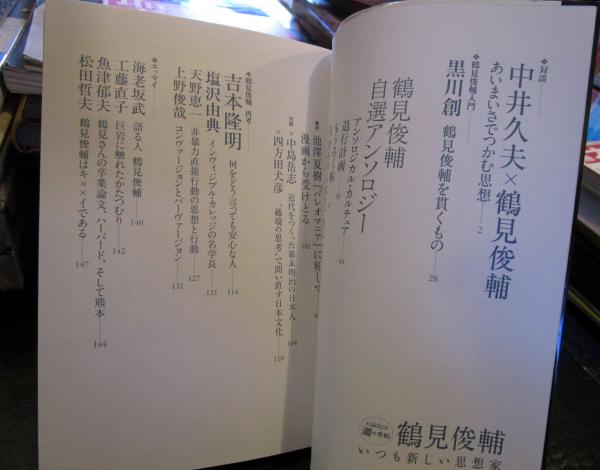 ◆対談
中井久夫×鶴見俊輔
あいまいさでつかむ思想——2
◆鶴見俊輔入門
黒川創 鶴見俊輔を貫くもの——28
鶴見俊輔
自選アンソロジー
アンソロジカル・カルチュア——44
退行計画
池澤夏樹『パレオマニア』に和して
漫画から受けとる——102
×中島岳志 近代をつくった幕末明治の日本人——104
×四方田犬彦 “越境の思考”で問い直す日本文化——110
◆鶴見俊輔 再考
吉本隆明 何をどう言っても安心な人——114
塩沢由典 インヴィジブル・カレッジの名学長——121
天野恵一 非暴力直接行動の思想と行動——127
上野俊哉 コンヴァージョンとパーヴァージョン——131
◆エッセイ
海老坂武 語る人 鶴見俊輔——140
工藤直子 巨岩に触れたかたつむり——142
魚津郁夫 鶴見さんの卒業論文、ハーバード、そして熊本——144
松田哲夫 鶴見俊輔はキ××イである——147
KAWADE
道の手帖
鶴見俊輔
いつも新しい思想家